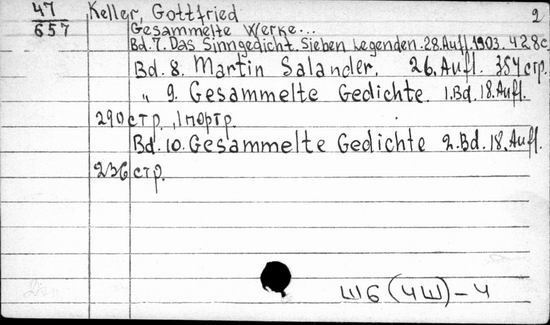 47 Keller, Gottfried 2
657 Gesammelte Werke...
Bd. 7. Das Sinngedicht. Sieben Legenden. 28. Aufl. 1903. 428 c.
Bd. 8. Martin Salander. 26. Aufl. 354 стр.
„ 9. Gesammelte Gedichte. 1. Bd. 18. Aufl.
290 стр., 1 портр.
Bd. 10. Gesammelte Gedichte 2. Bd. 18. Aufl.
236 стр.
Ш6(4Ш)-4